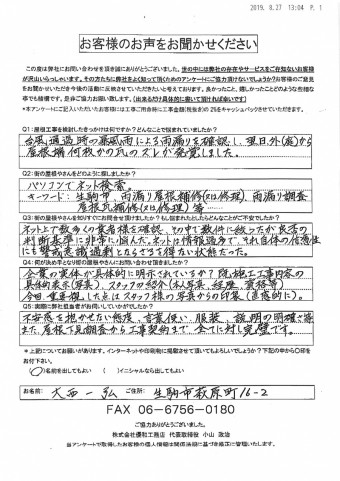 2019. 8.27 13:04 P. 1
お客様のお声をお聞かせください
この度は弊社にお問い合わせを頂き誠にありがとうございました。世の中には弊社の存在やサービスをご存知ないお客様
が沢山いらっしゃいます。その方たちに弊社をよく知って頂くためのアンケートにご協力頂けないでしょうか?お客様のご意見
をお聞かせいただき今後の活動に反映させていただきたいと考えております。良かったこと、嬉しかったことどのような些細な
事でも結構です。是非ご協力お願い致します。(出来るだけ具体的に書いて頂ければ幸いです)
*本アンケートにご記入いただいたお客様には工事ご用命時に工事金額(税抜き)の2%をキャッシュバックさせていただきます。
Q1:屋根工事を検討したきっかけは何ですか?どんなことで悩まれていましたか?
台風通過時の暴風雨による雨漏りを確認し、翌日外(庭)から
屋根瓦何枚かの瓦のズレが発覚しました。
Q2:街の屋根やさんをどのように探しましたか?
パソコンでネット検索。
キーワード:生駒市、雨漏り屋根補修(又は修理)、雨漏り調査
屋根瓦補修(又は修理)等
Q3:街の屋根やさんを知りすぐにお問合せ頂けましたか?もし悩まれたとしたらどんなことがご不安でしたか?
ネット上で数多くの業者様を確認、その中で数件に絞ったが良否の
判断基準に非常に悩んだ。ネットは情報過多で、それ自体の信憑性
にも警戒意識過剰とならざるを得ない状態だった。
Q4:何が決め手となり街の屋根やさんにお問い合わせ頂きましたか?
企業の実体が具体的に明示されているか?既施工工事内容の
具体的表示(写真)、スタッフの紹介(本人写真、経歴、資格等)
今回一重要視した点はスタッフ様の写真からの印象(直感的に)。
Q5:実際に弊社担当者がお伺いしていかがでしたか?
不安感を抱かせない態度、言葉使い、服装、説明の明確さ等
また、屋根下見調査から工事契約まで全てに対し完璧です。
* 上記についてお願いがあります。インターネットや印刷物に掲載させて頂いてもよろしいでしょうか?下記の中から○印をお
付け下さい。
(○)名前を出してもよい ( )イニシャルなら出してもよい
お名前: 大西一弘 ご住所: 生駒市萩原町16-2
FAX 06-6756-0180
ご協力ありがとうございました。
株式会社優和工務店 代表取締役 小山 政治
当アンケートで取得したお客様の個人情報は関係法規に基づき厳正に管理いたします。